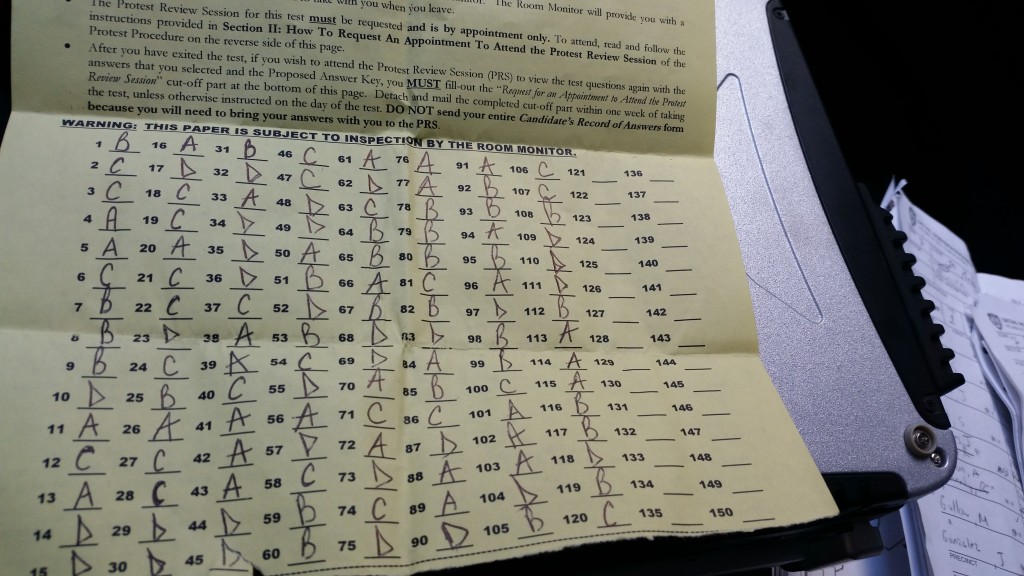 take with you when you leave. The Room Monitor will provide you with a
The Protest Review Session for this test must be requested and is by appointment only. To attend, read and follow the
instructions provided in Section II: How To Request An Appointment To Attend the Protest Review Session of the
Protest Procedure on the reverse side of this page.
• After you have exited the test, if you wish to attend the Protest Review Session (PRS) to view the test questions again with the
answers that you selected and the Proposed Answer Key, you MUST fill-out the "Request for an Appointment to Attend the Protest
Review Session" cut-off part at the bottom of this page. Detach and mail the completed cut-off part within one week of taking
the test, unless otherwise instructed on the day of the test. DO NOT send your entire Candidate's Record of Answers form
because you will need to bring your answers with you to the PRS.
WARNING: THIS PAPER IS SUBJECT TO INSPECTION BY THE ROOM MONITOR.
1 B 16 A 31 B 46 C 61 A 76 A 91 A 106 C 121 136
2 C 17 D 32 D 47 C 62 D 77 A 92 B 107 C 122 137
3 C 18 C 33 A 48 D 63 C 78 B 93 B 108 B 123 138
4 A 19 C 34 D 49 D 64 B 79 B 94 A 109 D 124 139
5 A 20 A 35 D 50 A 65 B 80 B 95 B 110 D 125 140
6 C 21 C 36 D 51 B 66 A 81 C 96 A 111 D 126 141
7 B 22 C 37 C 52 D 67 B 82 B 97 D 112 B 127 142
8 B 23 D 38 A 53 B 68 D 83 D 98 B 113 A 128 143
9 B 24 C 39 A 54 C 69 D 84 A 99 B 114 A 129 144
10 D 25 B 40 C 55 D 70 A 85 B 100 C 115 A 130 145
11 A 26 A 41 A 56 A 71 C 86 C 101 A 116 B 131 146
12 C 27 C 42 A 57 D 72 A 87 D 102 A 117 B 132 147
13 A 28 C 43 A 58 C 73 D 88 A 103 A 118 D 133 148
14 D 29 D 44 D 59 B 74 C 89 A 104 D 119 B 134 149
15 D 30 D 45 D 60 B 75 D 90 D 105 B 120 C 135 150
Gonzalez J
PRECINCT